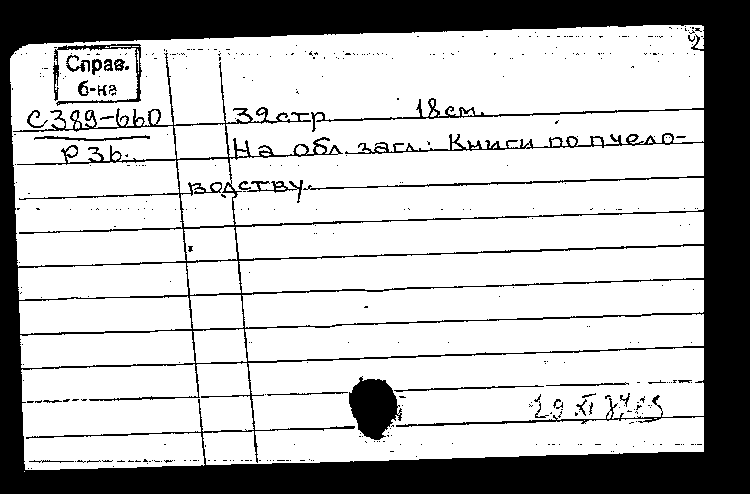 2
Справ.
б-на
С389-660
Р36.
32стр. 18см.
На обл. загл.: Книги по пчело-
водству.
29 XI